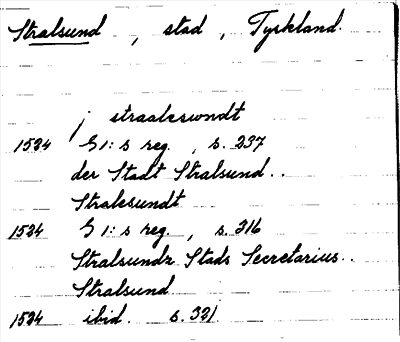 Stralsund, stad, Tyskland.
j straaleswndt
1524 G 1:s reg., s. 237
der Stadt Stralsund..
Stralesundt
1524 G 1:s reg., s. 316
Stralsundz Stads Secretarius..
Stralsund
1524 ibid. s. 321